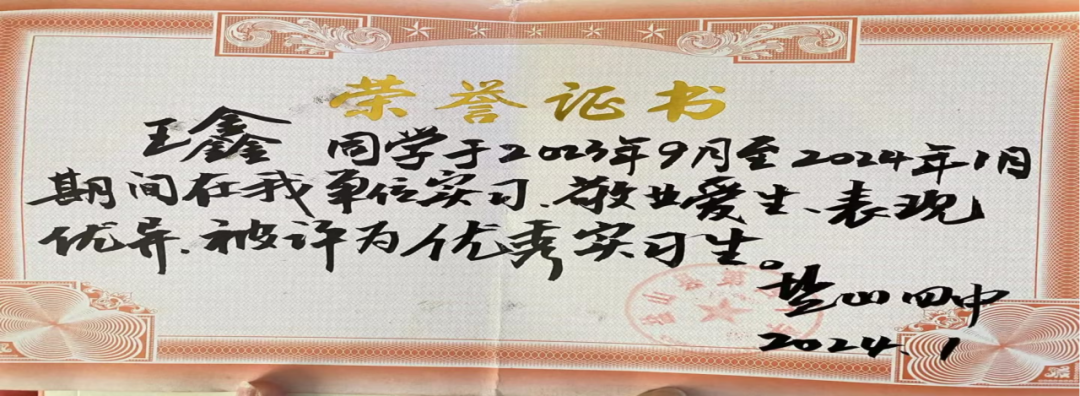 荣誉证书
王鑫 同学于2023年9月至2024年1月
期间在我单位实习、敬业爱生、表现
优异、被评为优秀实习生。
盐山四中
2024.1